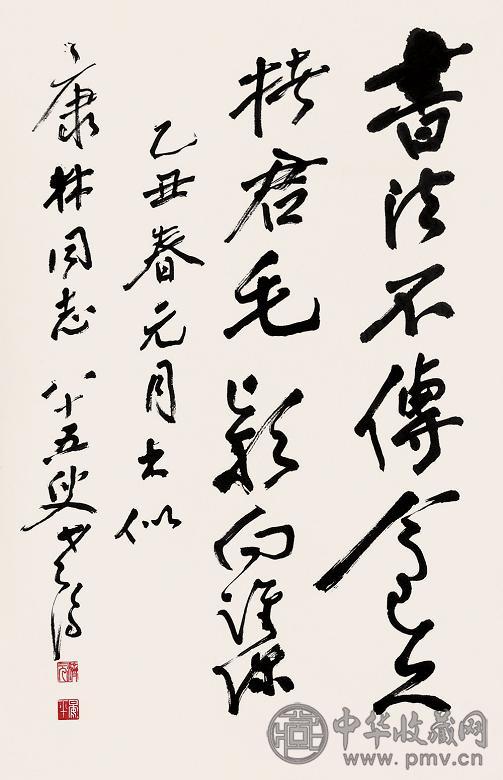 書法不傳今已久
楮君毛穎向誰陳
乙丑春元月书似
康林同志 八十五叟
中华收藏网
www.pmv.cn